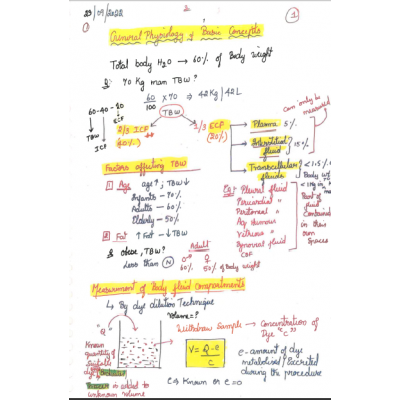 23/09/2022
1
General Physiology & Basic Concepts
Total body H2O → 60% of Body weight
Q: 70 kg man TBW?
60/100 x 70 → 42 kg / 42 L
60-40-20
ECF
ICF
TBW
TBW
2/3 ICF
(40%)
2/3 ECF
(20%)
→ Plasma 5%
→ Interstitial fluid 15%
→ Transcellular fluids
Can only be measured
< 1.5%
Body wt
Part of fluid contained in their own spaces
Factors affecting TBW
1. Age age↑, TBW↓
Infants - 70%
Adults - 60%
Elderly - 50%
2. Fat ↑ Fat - ↓ TBW
& obese, TBW?
Less than (N)
Adult
♂ ♀
60% 50% of Body weight
Eg: Pleural fluid
Pericardial "
Peritoneal "
Aq Humour
Vitreous "
Synovial fluid
CSF
Measurement of Body fluid Compartments
↳ By dye dilution Technique
Volume = ?
"Q"
Known quantity of
Suitable dye
is added to unknown volume
Withdraw Sample → Concentration of Dye "C"
V = Q - e / C
e - amount of dye metabolised/excreted during the procedure
e → Known or e = 0